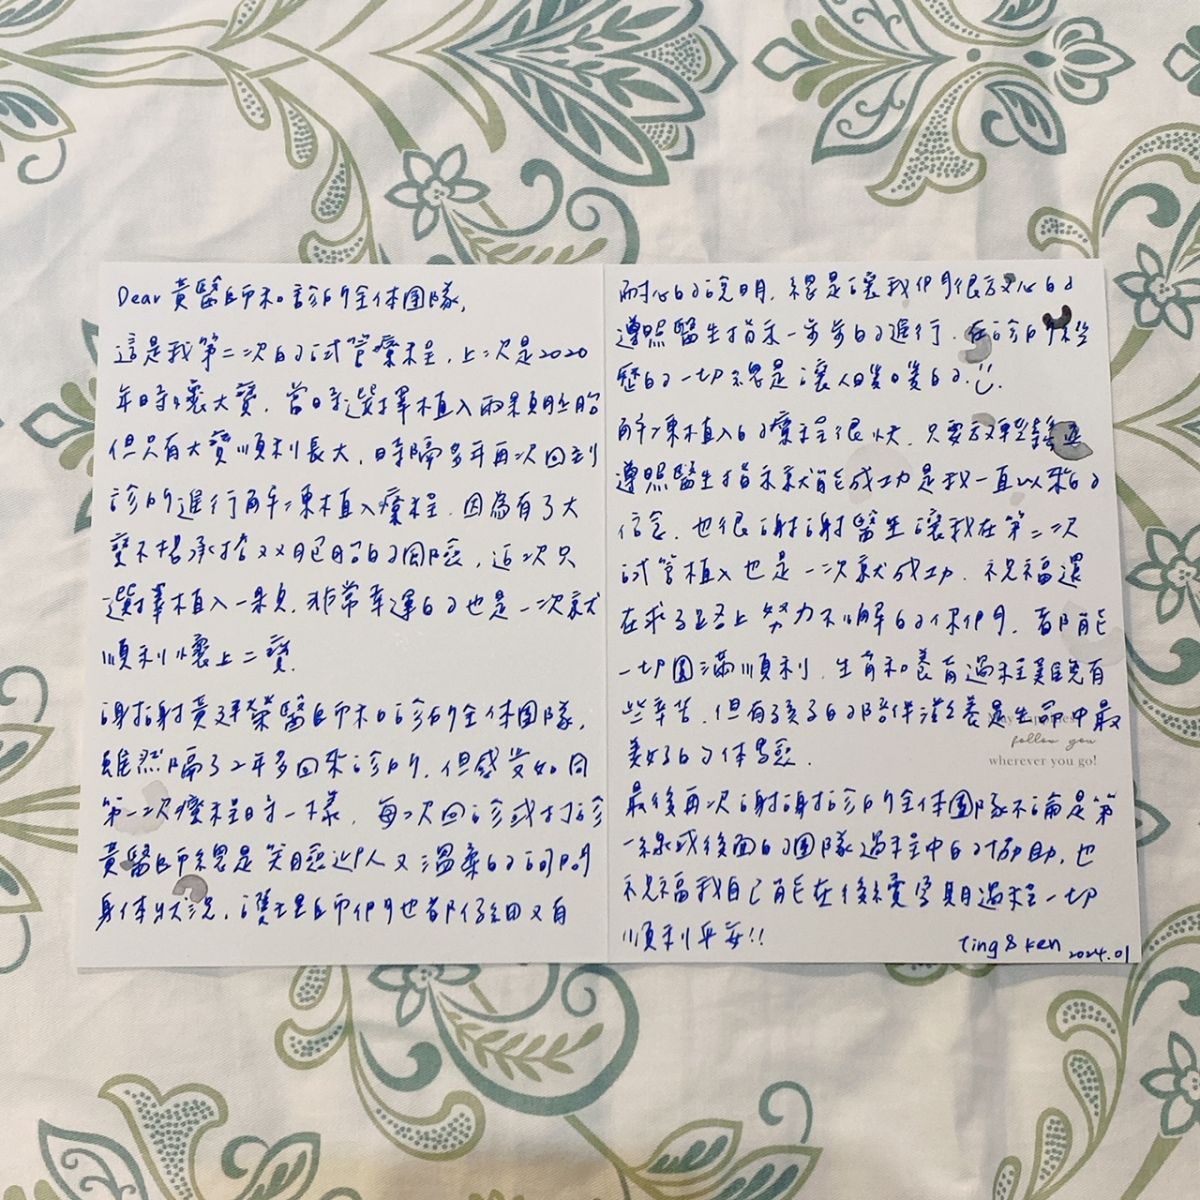 Dear 黃醫師和診所全体團隊,
這是我第二次的試管療程, 上次是2020
年時懷大寶. 當時選擇植入兩顆胚胎
但只有大寶順利長大. 時隔多年再次回到
診所進行解凍植入療程. 因為有了大
寶不想承擔双胞胎的風險, 這次只
選擇植入一顆. 非常幸運的也是一次就
順利懷上二寶.
謝謝黃建榮醫師和診所全体團隊,
雖然隔了2年多回來診所, 但感覺如同
第一次療程時一樣. 每次回診或打診
黃醫師總是笑臉迎人又溫柔的詢問
身体狀況. 護理師們也都仔細又有
耐心的說明. 總是讓我們很放心的
遵照醫生指示一步步的進行. 在診所經
歷的一切總是讓人暖暖的.
解凍植入的療程很快, 只要放輕鬆
遵照醫生指示就能成功是我一直以來的
信念. 也很謝謝醫生讓我在第二次
試管植入也是一次就成功. 祝福還
在求子路上努力不懈的你們, 都能
一切圓滿順利. 生育和養育過程雖有
些辛苦. 但有孩子的陪伴滋養是生命中最
美好的体驗.
follow you
wherever you go!
最後再次謝謝診所全体團隊不論是第
一線或後面的團隊過程中的協助, 也
祝福我自己能在後續孕期過程一切
順利平安!!
Ting & Ken 2024.01